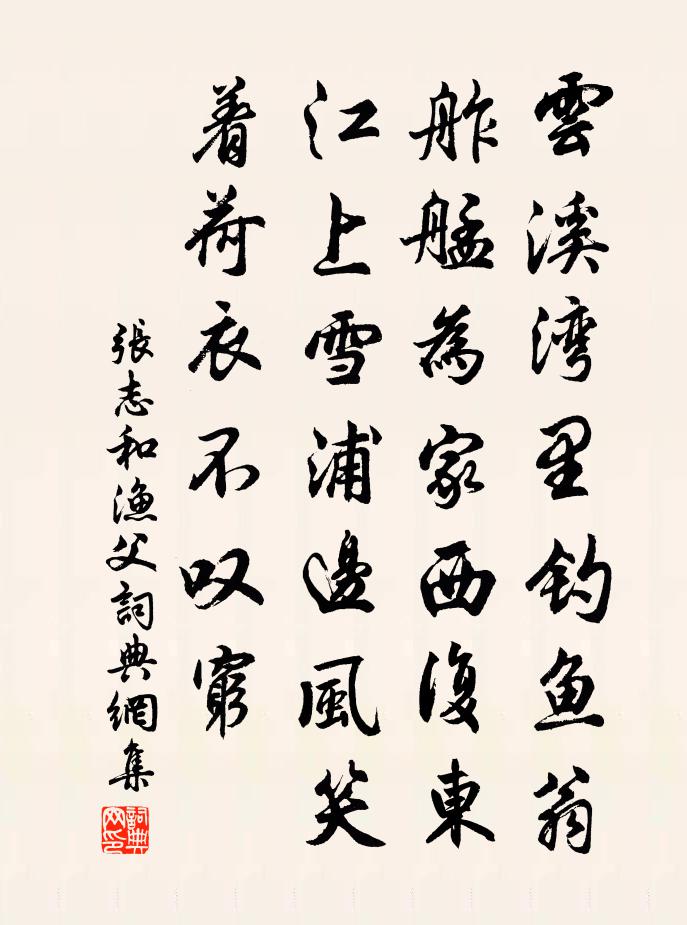 雲溪湾里釣魚翁
舴艋為家西復東
江上雪浦邊風笑
着荷衣不叹窮
張志和漁父詞典網集
詞典网印